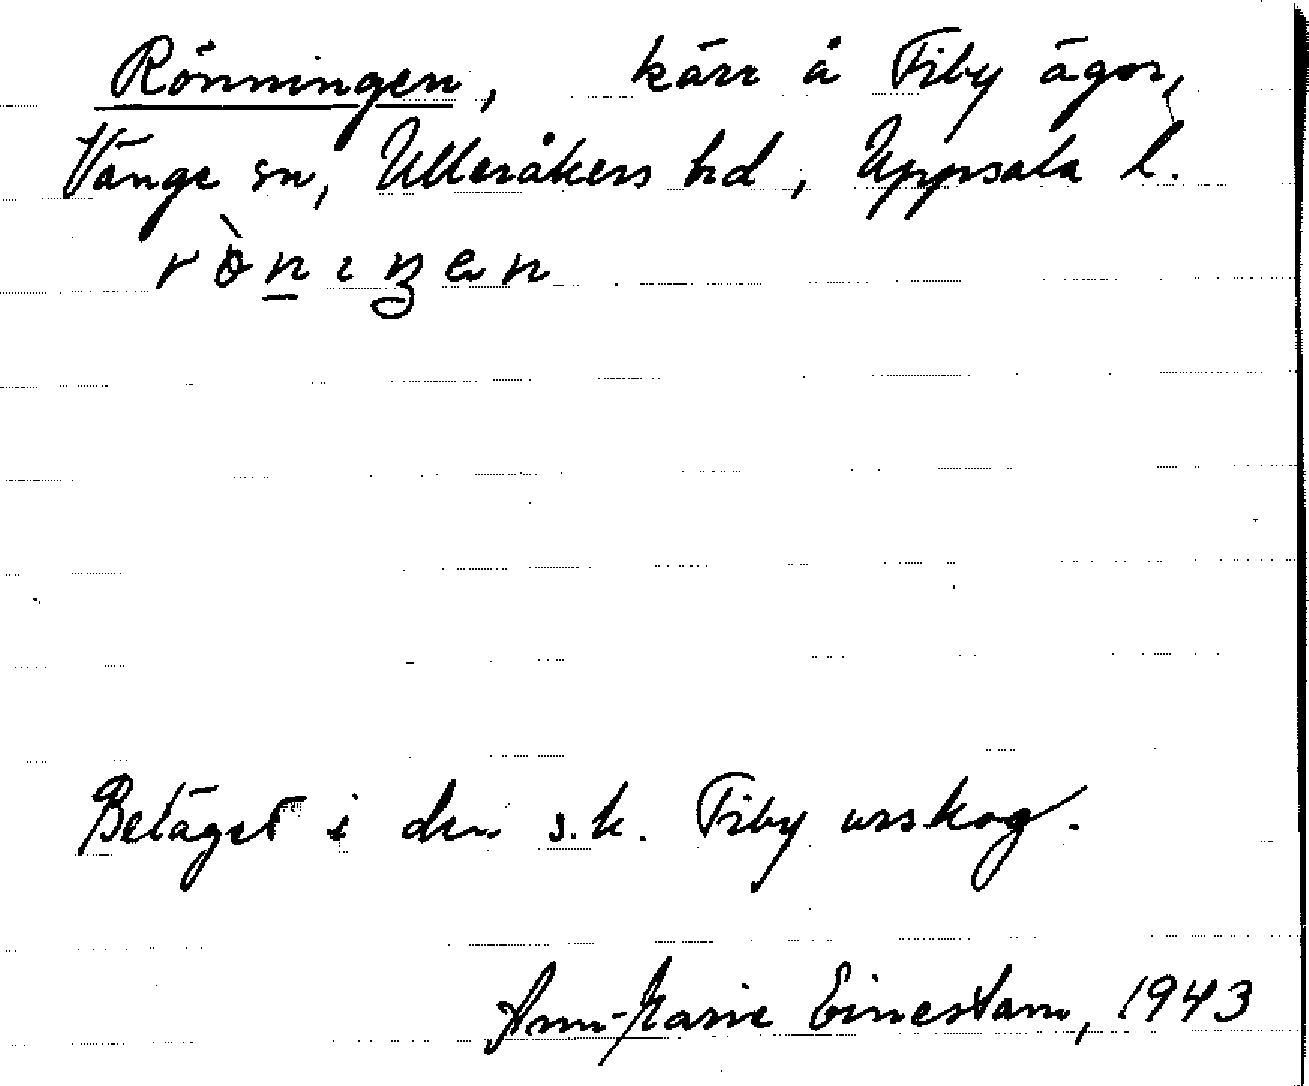 Rönningen, kärr å Fiby ägor,
Vänge sn, Ulleråkers hd, Uppsala l.
Beläget i den s.k. Fiby urskog.
Ann-Marie Einestam, 1943